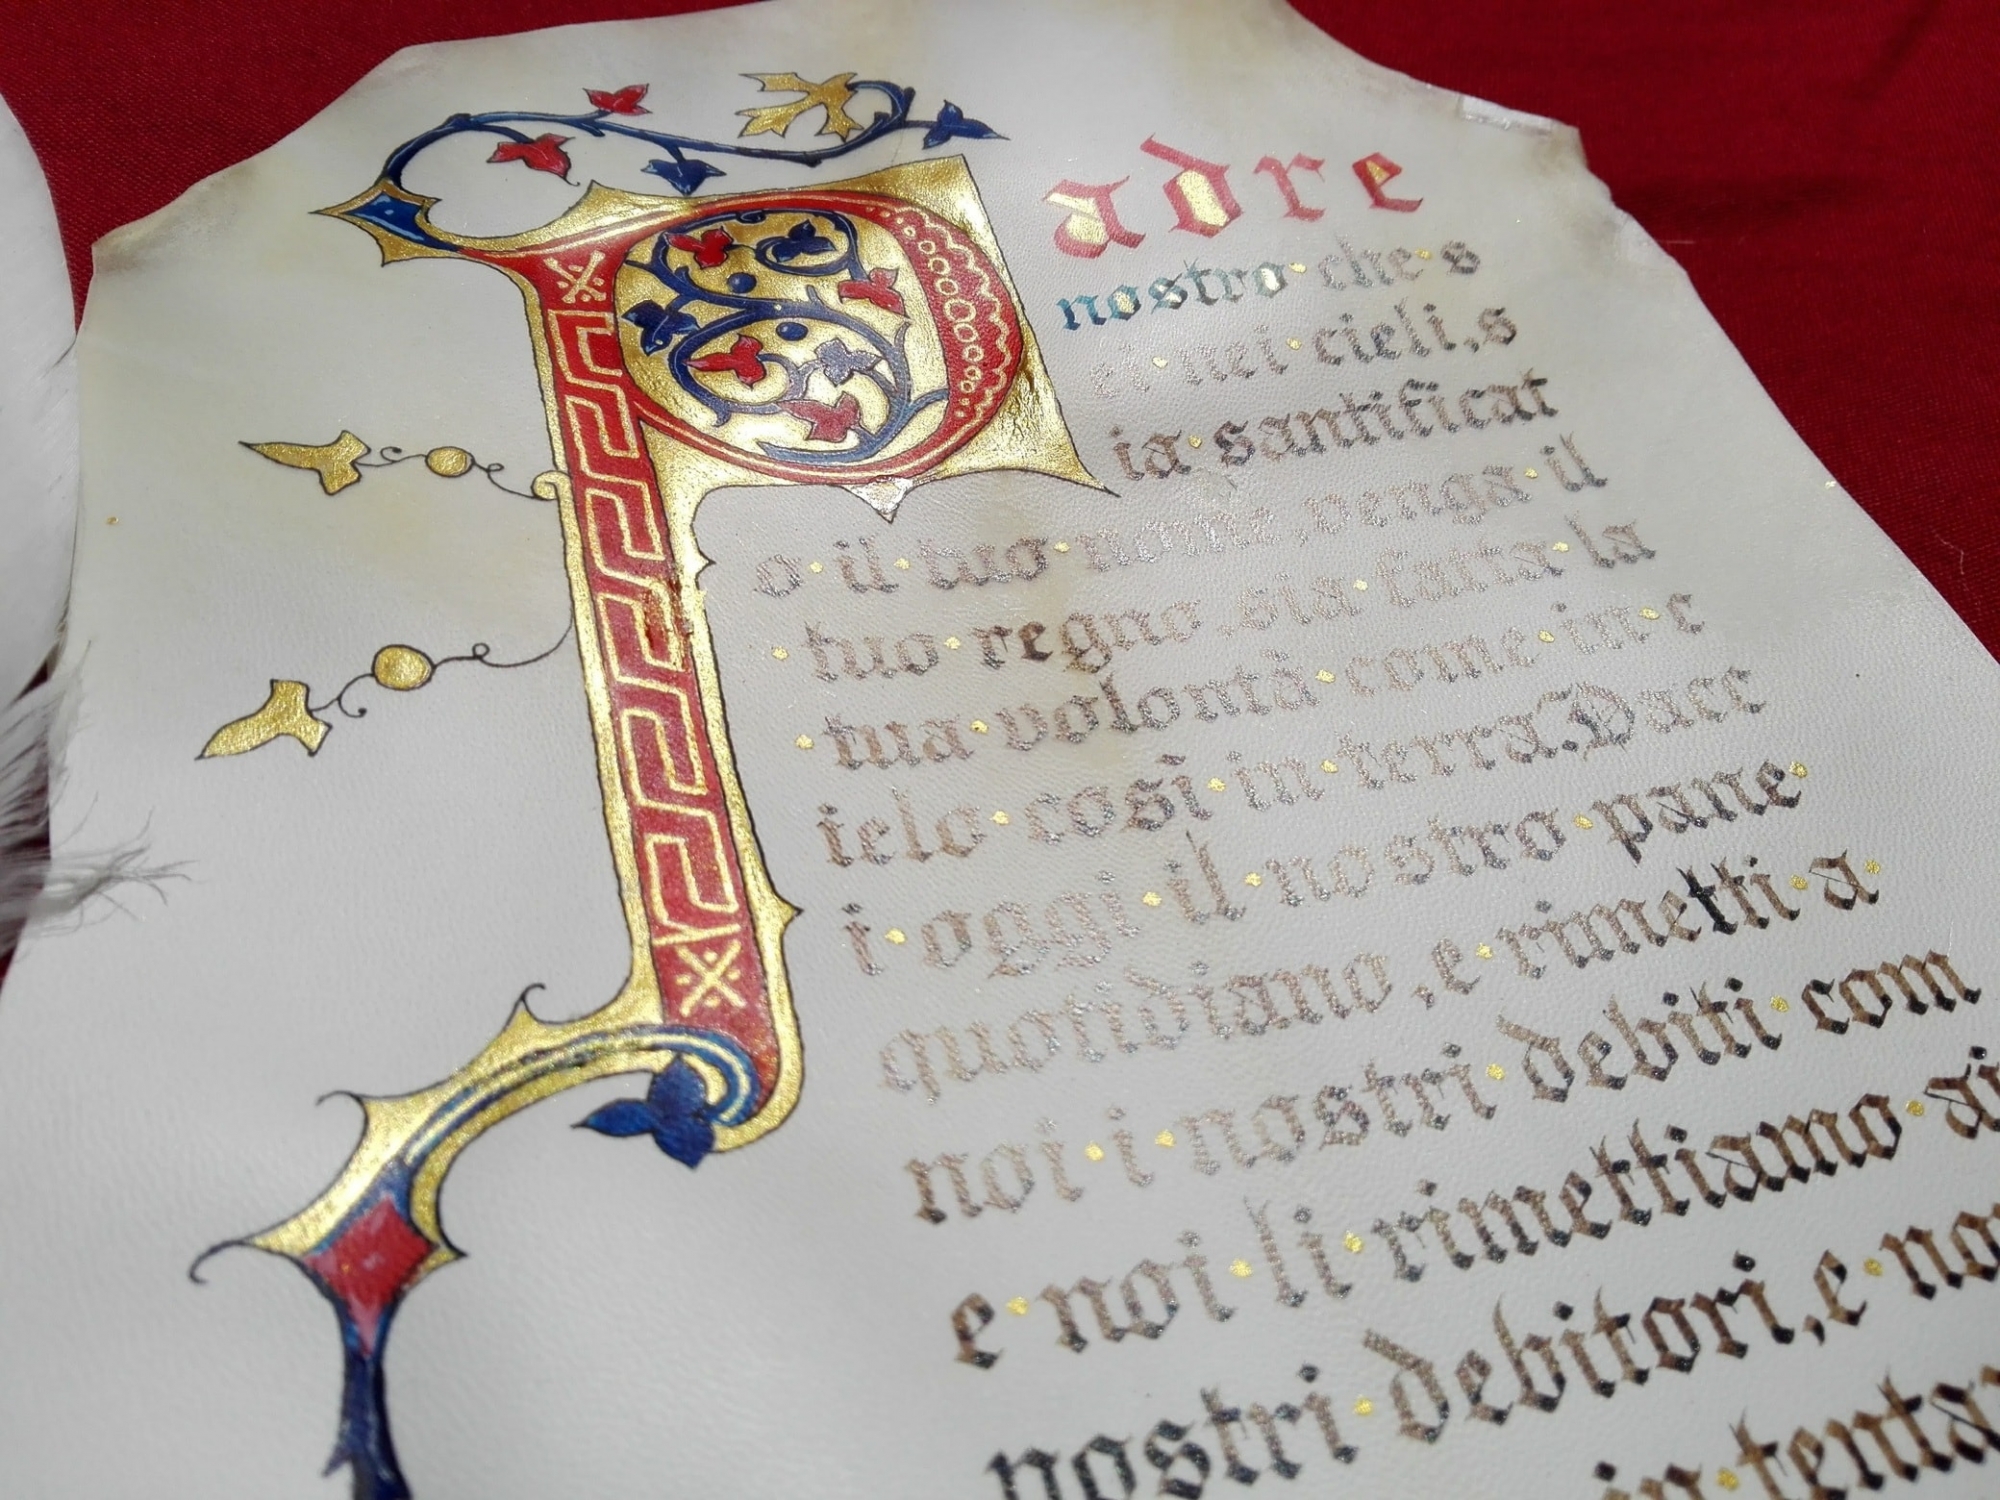 Padre
nostro·che·s
ei·nei·cieli,s
ia·santificat
o·il·tuo·nome,venga·il
·tuo·regno,sia·fatta·la
·tua·volontà·come·in·c
ielo·così·in·terra.Dacc
i·oggi·il·nostro·pane·
quotidiano,e·rimetti·a·
noi·i·nostri·debiti·com
e·noi·li·rimettiamo·ai
nostri·debitori,e·no
in·tenta